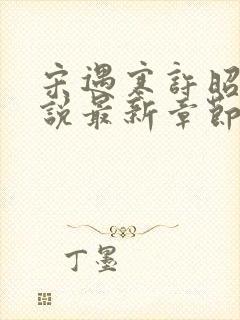 宋遇寒許昭
說最新章節
丁墨